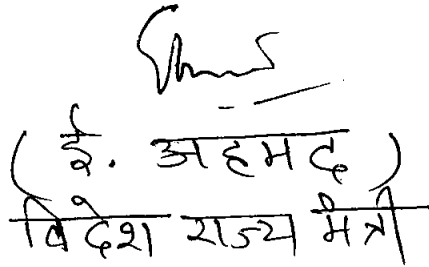 ( ई. अहमद )
विदेश राज्य मंत्री